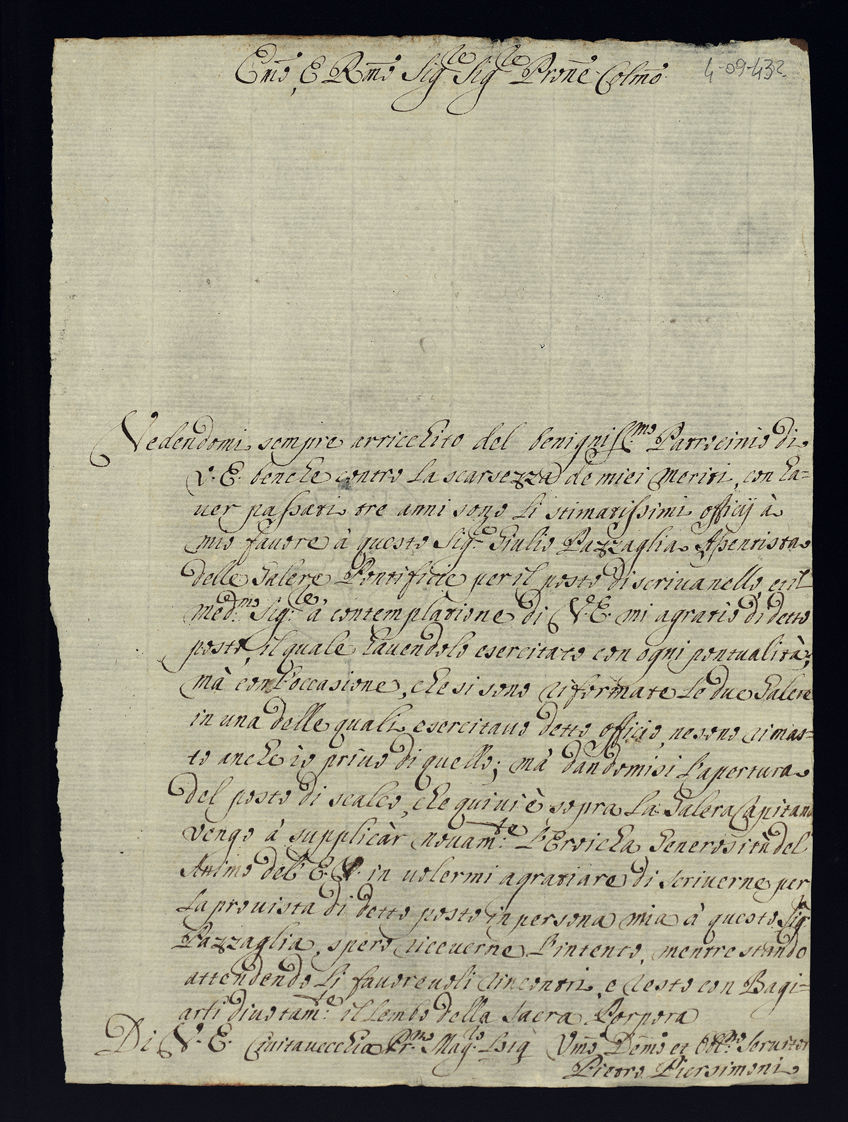 Emo, E Rmo Sigre Sigre Prone Colmo
4-09-432
Vedendomi sempre arricchito del benigniss.mo Patrocinio di
V. E. benche contro la scarsezza de miei meriti, con ha=
uer passati tre anni sono li stimatissimi officij à
mio fauore à questo Sig.re Giulio Pazzaglia Assentista
delle Galere Pontificie per il posto di scriuanello, et il
med.mo Sig.re à contemplatione di V. E. mi agratiò di detto
posto, il quale hauendolo esercitato con ogni pontualità;
mà con l'occasione, che si sono riformate le due Galere
in una delle quali esercitauo detto officio, ne sono rimas=
to anche io priuo di quello; mà dandomisi l'apertura
del posto di scalco, che quiui è sopra la Galera Capitana
vengo à supplicàr nouam.te l'Eroicha Generosità del
Animo del E. V. in uolermi agratiare di scriuerne per
la prouista di detto posto in persona mia à questo Sig.
Pazzaglia, spero riceuerne l'intento, mentre stando
attendendo li fauoreuoli rincontri, e resto con Bagi=
arli diuotam.te il lembo della Sacra Porpora
Di V. E. Ciuitauecchia Pr.mo Mag.o Vmo Deuo et Obb.mo Seruitor
Pietro Piersimoni